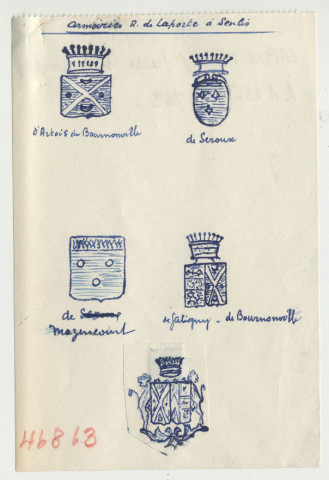 Armoiries R. de Laporte à Senlis
d'Artois de Bournonville
de Seroux
de
Mazencourt
de Gatigny - de Bournonville
46863